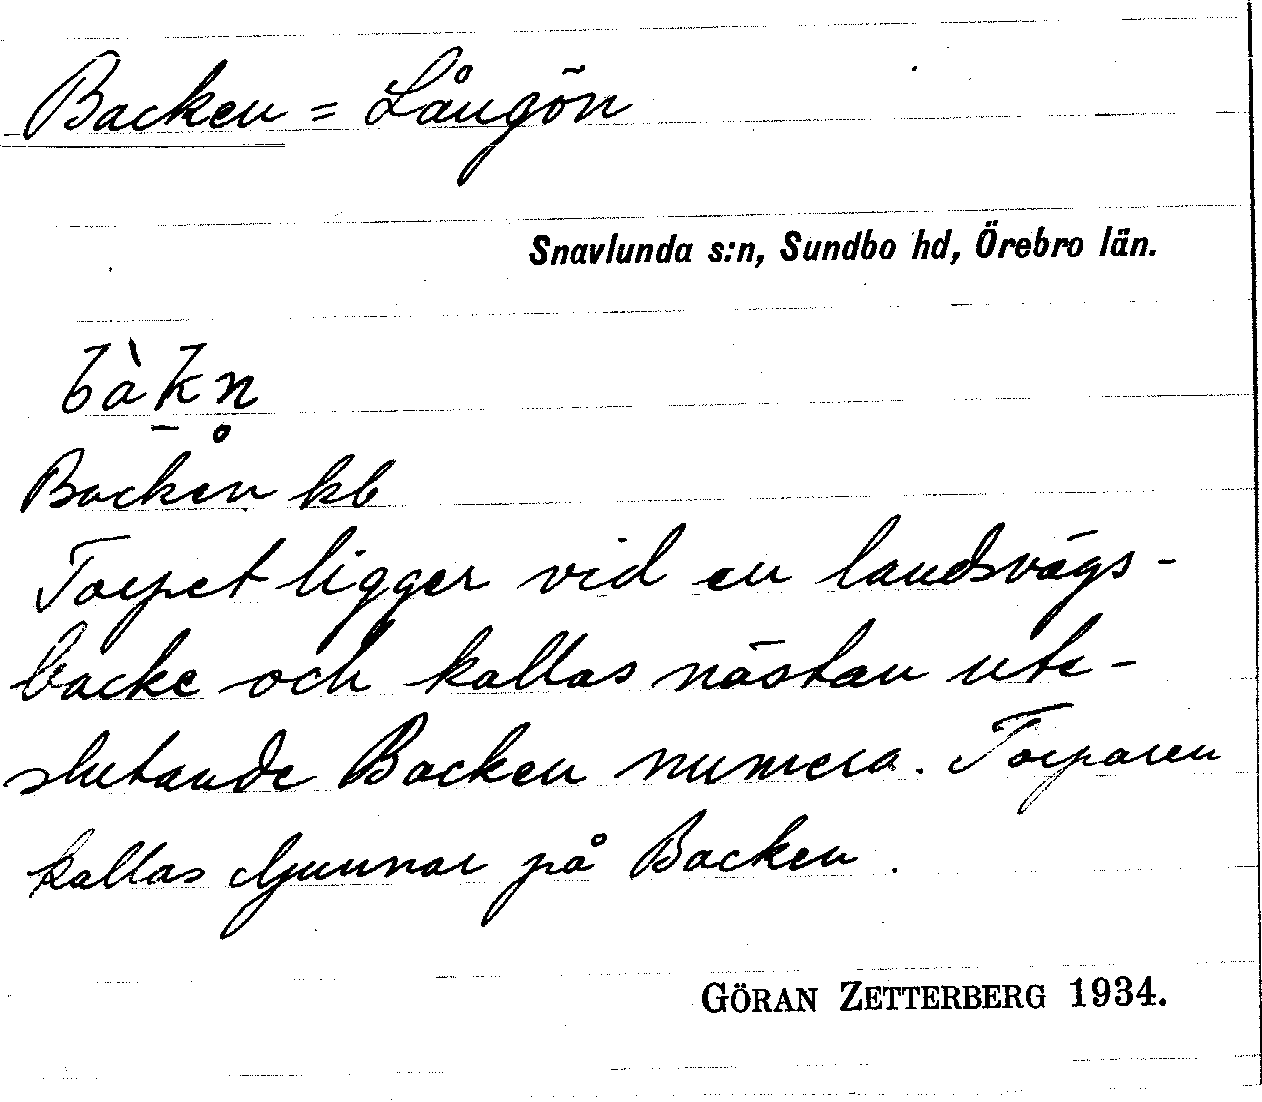 Backen = Långön
Snavlunda s:n, Sundbo hd, Örebro län.
bàk̠n̥
Backen kb
Torpet ligger vid en landsvägs-
backe och kallas nästan ute-
slutande Backen numera. Torparen
kallas Gunnar på Backen.
GÖRAN ZETTERBERG 1934.